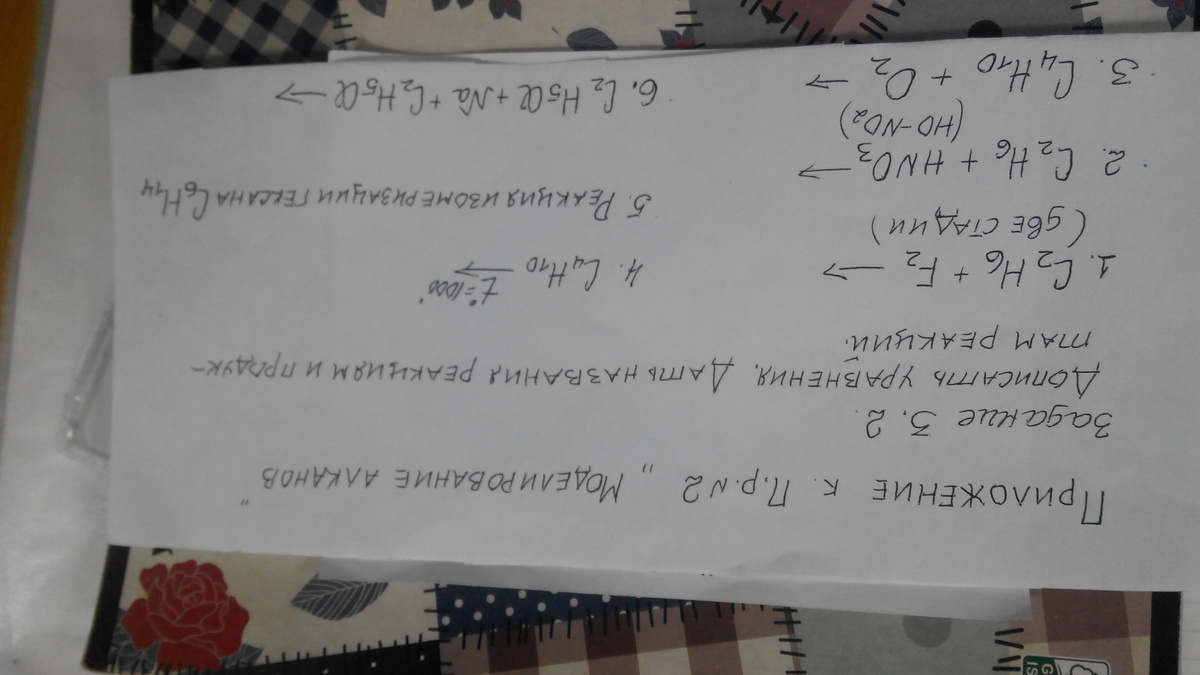 Приложение к П.р.№2 „Моделирование алканов"
Задание 3.2.
Дописать уравнения. Дать названия реакциям и продук-
там реакций.
1. C₂H₆ + F₂ →
(две стадии)
2. C₂H₆ + HNO₃ →
(HO-NO₂)
3. C₄H₁₀ + O₂ →
4. C₄H₁₀ t°=1000° →
5. Реакция изомеризации гексана C₆H₁₄
6. C₂H₅Cl + Na + C₂H₅Cl →